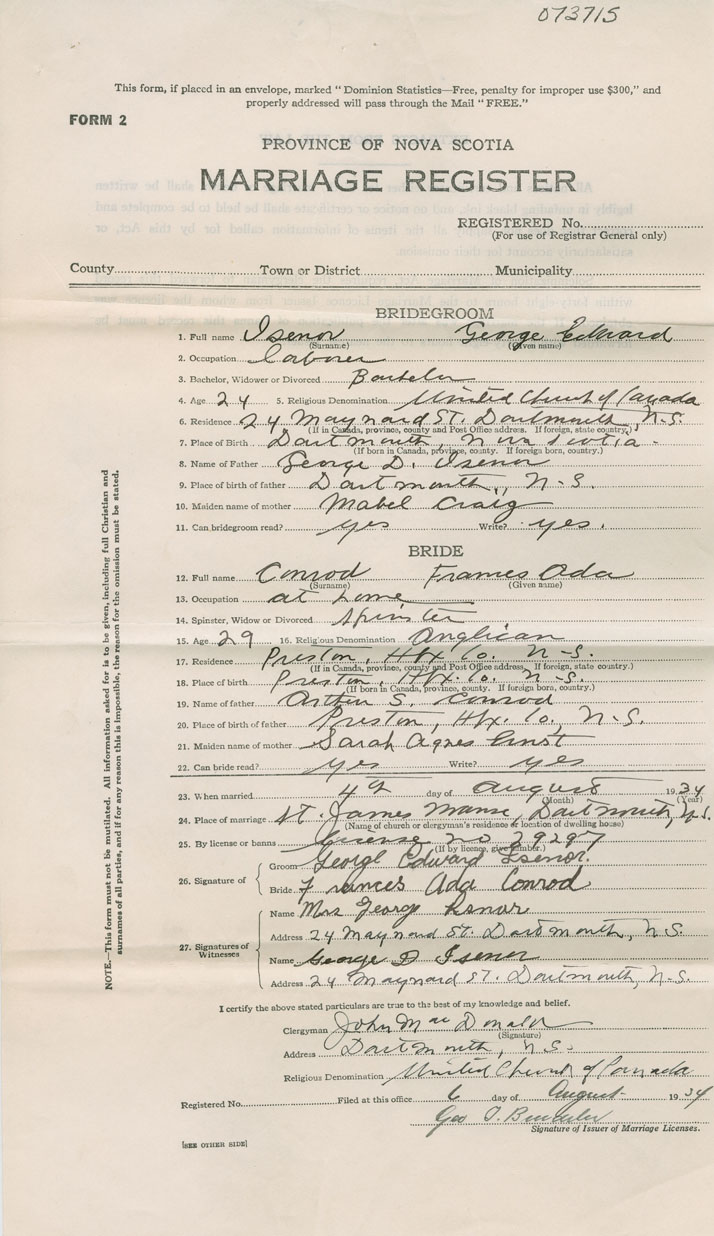 073715
This form, if placed in an envelope, marked "Dominion Statistics—Free, penalty for improper use $300," and
properly addressed will pass through the Mail "FREE."
FORM 2
PROVINCE OF NOVA SCOTIA
MARRIAGE REGISTER
REGISTERED No.
(For use of Registrar General only)
County Town or District Municipality
BRIDEGROOM
1. Full name Isenor George Edward
(Surname) (Given name)
2. Occupation Laborer
3. Bachelor, Widower or Divorced Bachelor
4. Age 24 5. Religious Denomination United Church of Canada
6. Residence 24 Maynard St. Dartmouth, N.S.
(If in Canada, province, county and Post Office address. If foreign, state country.)
7. Place of Birth Dartmouth, Nova Scotia
(If born in Canada, province, county. If foreign born, country.)
8. Name of Father George D. Isenor
9. Place of birth of father Dartmouth, N-S.
10. Maiden name of mother Mabel Craig
11. Can bridegroom read? yes Write? yes.
BRIDE
12. Full name Conrod Frances Ada
(Surname) (Given name)
13. Occupation at home
14. Spinster, Widow or Divorced Spinster
15. Age 29 16. Religious Denomination Anglican
17. Residence Preston, Hfx. Co. N-S.
(If in Canada, province, county and Post Office address. If foreign, state country.)
18. Place of birth Preston, Hfx. Co. N-S.
(If born in Canada, province, county. If foreign born, country.)
19. Name of father Arthur S. Conrod
20. Place of birth of father Preston, Hfx. Co., N-S.
21. Maiden name of mother Sarah Agnes Ernst
22. Can bride read? yes Write? yes
23. When married 4th day of August 1934
(Month) (Year)
24. Place of marriage St. James Manse, Dartmouth, N.S.
(Name of church or clergyman's residence or location of dwelling house)
25. By license or banns license no 29297
(If by licence, give number.)
26. Signature of
Groom George Edward Isenor.
Bride Frances Ada Conrod
27. Signatures of Witnesses
Name Mrs George Isenor
Address 24 Maynard St. Dartmouth, N.S.
Name George D Isenor
Address 24 Maynard St. Dartmouth, N-S.
I certify the above stated particulars are true to the best of my knowledge and belief.
Clergyman John MacDonald
(Signature)
Address Dartmouth, N.S.
Religious Denomination United Church of Canada
Registered No. Filed at this office 6 day of August 1934
Geo T.
Signature of Issuer of Marriage Licenses.
[SEE OTHER SIDE]
NOTE.—This form must not be mutilated. All information asked for is to be given, including full Christian and
surnames of all parties, and if for any reason this is impossible, the reason for the omission must be stated.